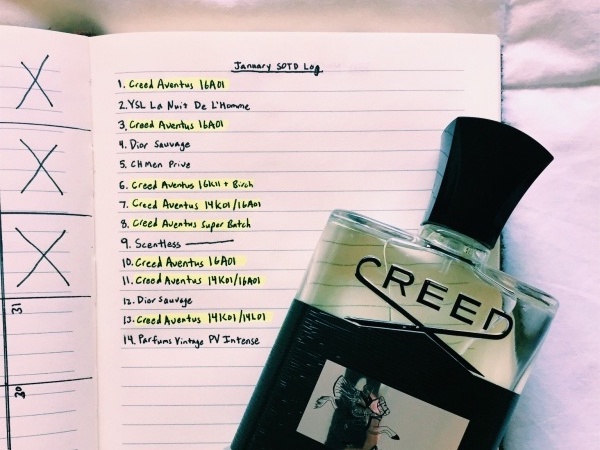 January SOTD Log
1. Creed Aventus 16A01
2. YSL La Nuit De L'Homme
3. Creed Aventus 16A01
4. Dior Sauvage
5. CH Men Prive
6. Creed Aventus 16K11 + Birch
7. Creed Aventus 14K01/16A01
8. Creed Aventus Super Batch
9. Scentless
10. Creed Aventus 16A01
11. Creed Aventus 14K01/16A01
12. Dior Sauvage
13. Creed Aventus 14K01/14L01
14. Parfums Vintage PV Intense
31
30
CREED